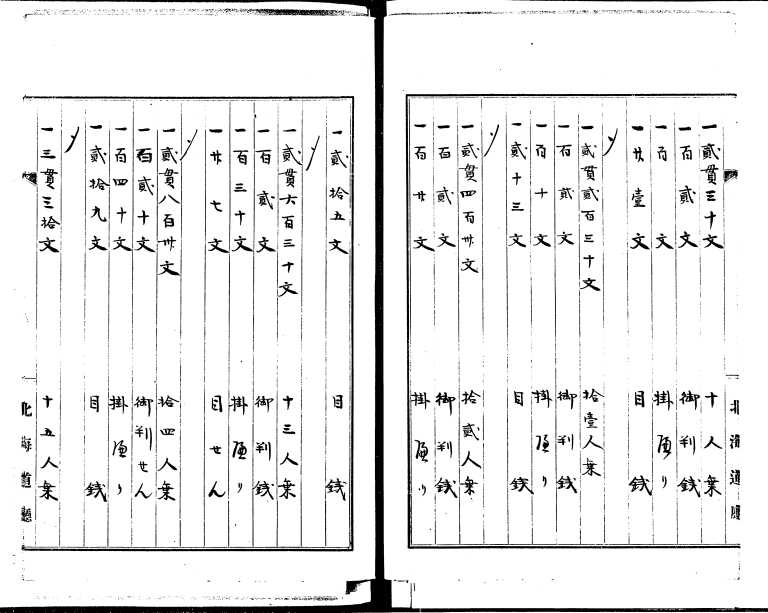 一貳貫三十文 十人乗
一百貳文 御判銭
一百文 掛り
一廿壹文 目銭
〆
一貳貫貳百三十文 拾壹人乗
一百貳文 御判銭
一百十文 掛り
一貳十三文 目銭
〆
一貳貫四百卅文 拾貳人乗
一百貳文 御判銭
一百廿文 掛り
一貳拾五文 目銭
〆
一貳貫六百三十文 十三人乗
一百貳文 御判銭
一百三十文 掛り
一廿七文 目せん
〆
一貳貫八百卅文 拾四人乗
一百貳十文 御判せん
一百四十文 掛り
一貳拾九文 目銭
〆
一三貫三拾文 十五人乗
北海道廳
北海道廳